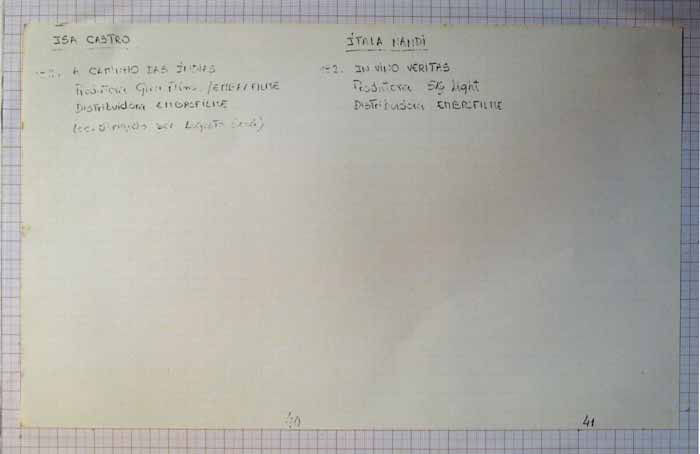 ISA CASTRO
A CAMINHO DAS ÍNDIAS
Produtora Gira Filmes/EMBRAFILME
Distribuidora EMBRAFILME
(co-dirigido por Augusto
40
ÍTALA NANDI
1982. IN VINO VERITAS
Produtora Sky Light
Distribuidora EMBRAFILME
41